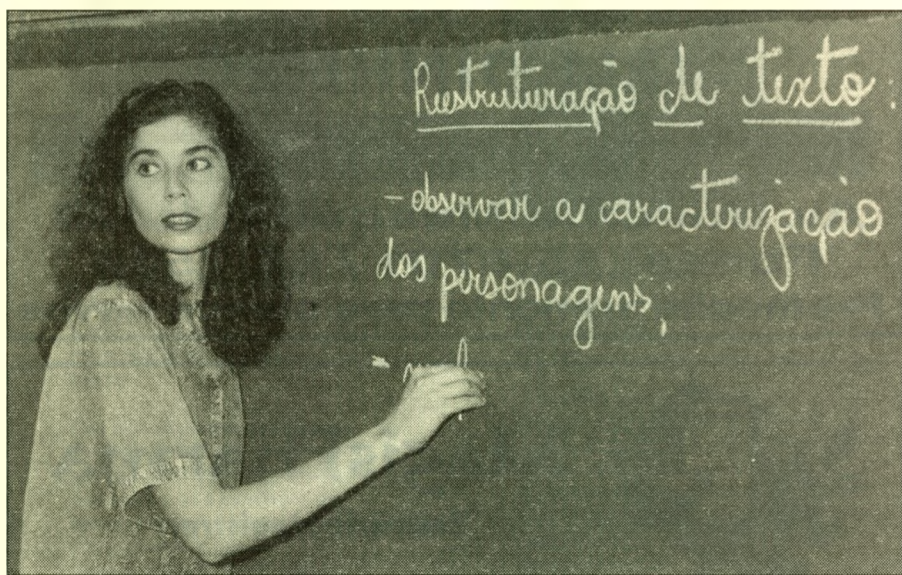 Reestruturação de texto:
- observar a caracterização
dos personagens;
-